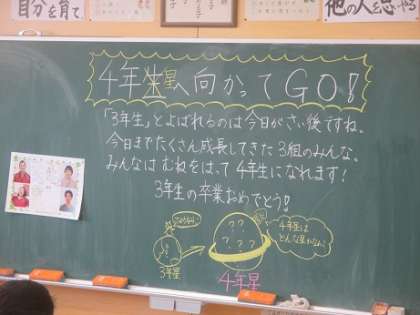 自分を育て
他の人を思いやる
4年生星へ向かってGO!
「3年生」とよばれるのは今日がさい後ですね。
今日までたくさん成長してきた3組のみんな。
みんなはむねをはって4年生になれます!
3年生の卒業おめでとう!
3年星
4年星
? ?
? ? ? ?
4年生は
どんな星かな?